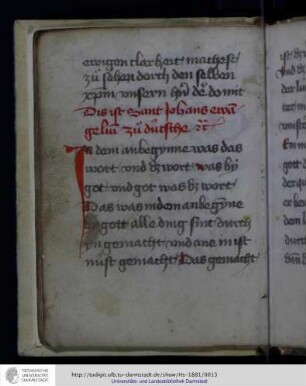 ewigen klarheit machest
zü sehen dorch den selben
xpm vnsern hrn dc do mit
Dis ist Sant Johans ewā
geliū zü dütsche ꝛc
In dem anbegynne was das
wort vnd dz wort was by
got vnd got was dz wort
Das was in dem anbegyne
by gott alle ding sint durch
yn gemacht vnd ane in ist
nust gemacht Das gemacht
TECHNISCHE
UNIVERSITÄT
DARMSTADT
http://tudigit.ulb.tu-darmstadt.de/show/Hs-1881/0013
Universitäts- und Landesbibliothek Darmstadt